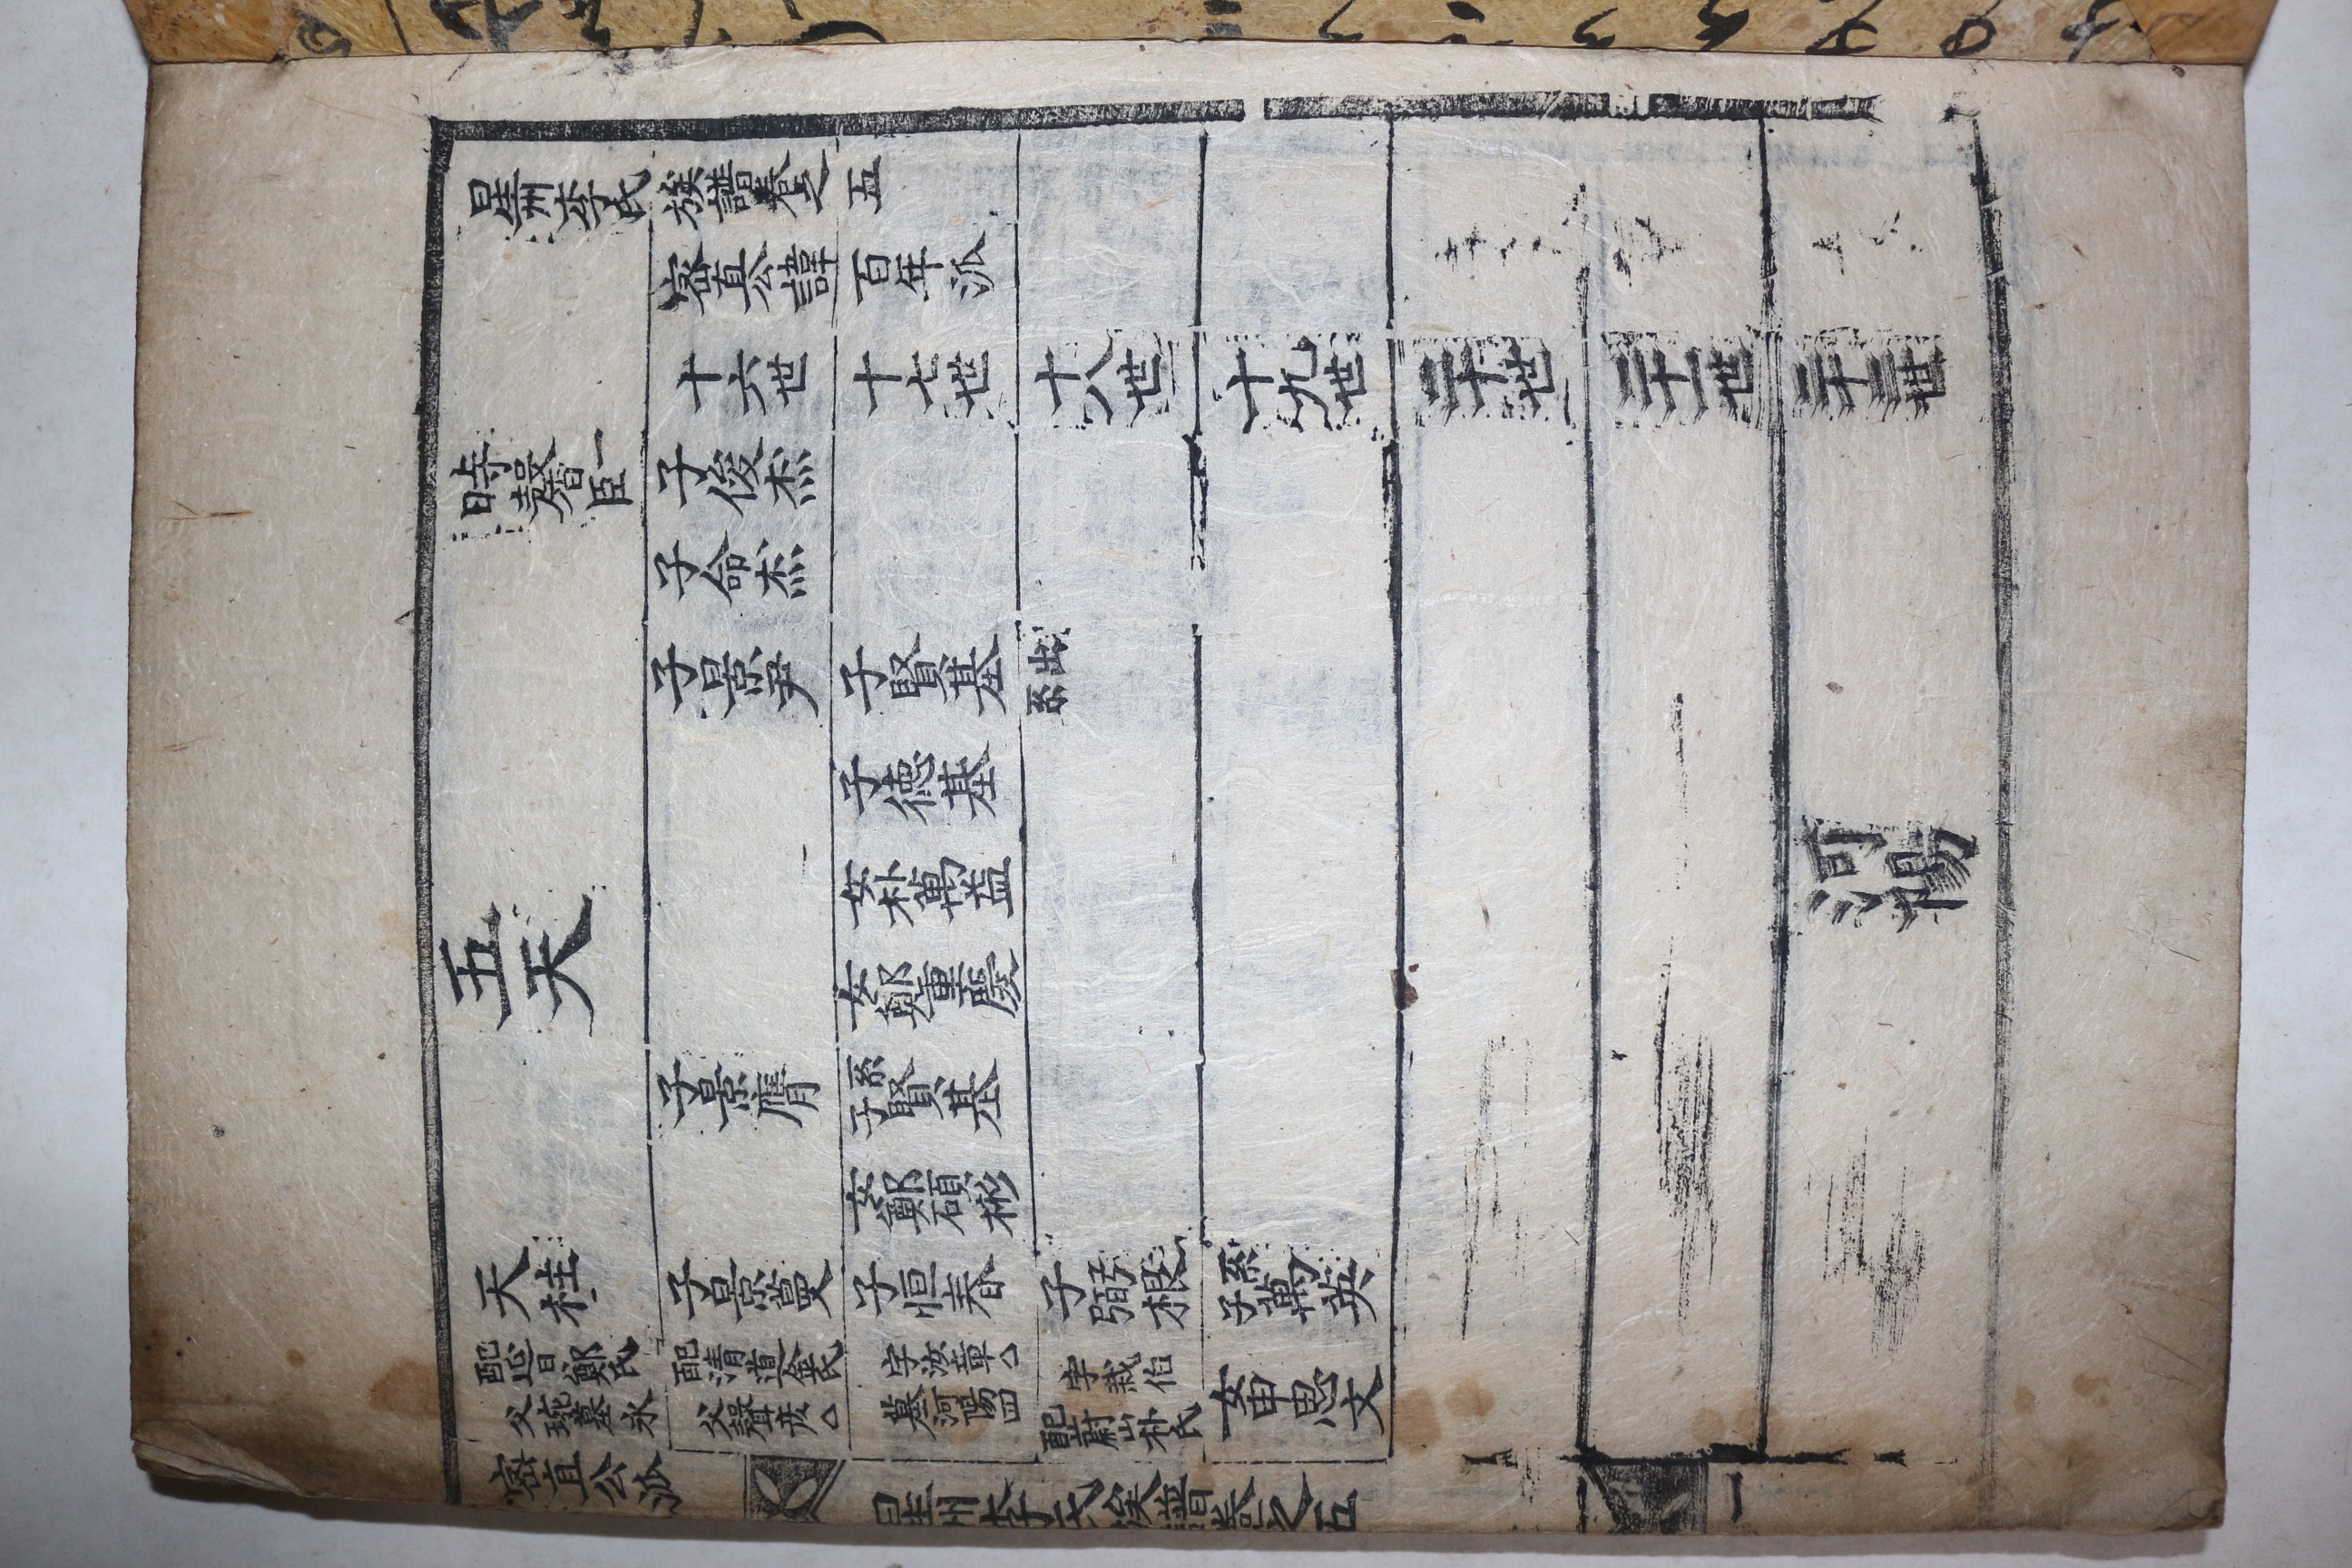 星州李氏族譜卷之五
密直公諱百年派
十六世 十七世 十八世 十九世 二十世 二十一世 二十二世
時 子俊杰
子命杰
子景尹 子賢基 出系
子德基
女朴萬益 河陽
五天 女鄭重慶
子景膺 系子賢基
女鄭碩彬
天柱 子景 子恒春 子根 系子萬英
配迎日鄭氏 配清道金氏 字汝章 字栽伯
父琬墓永 父聲彦 墓河陽四 配蔚山朴氏 女申思文
密直公派 星州李氏族譜卷之五 一